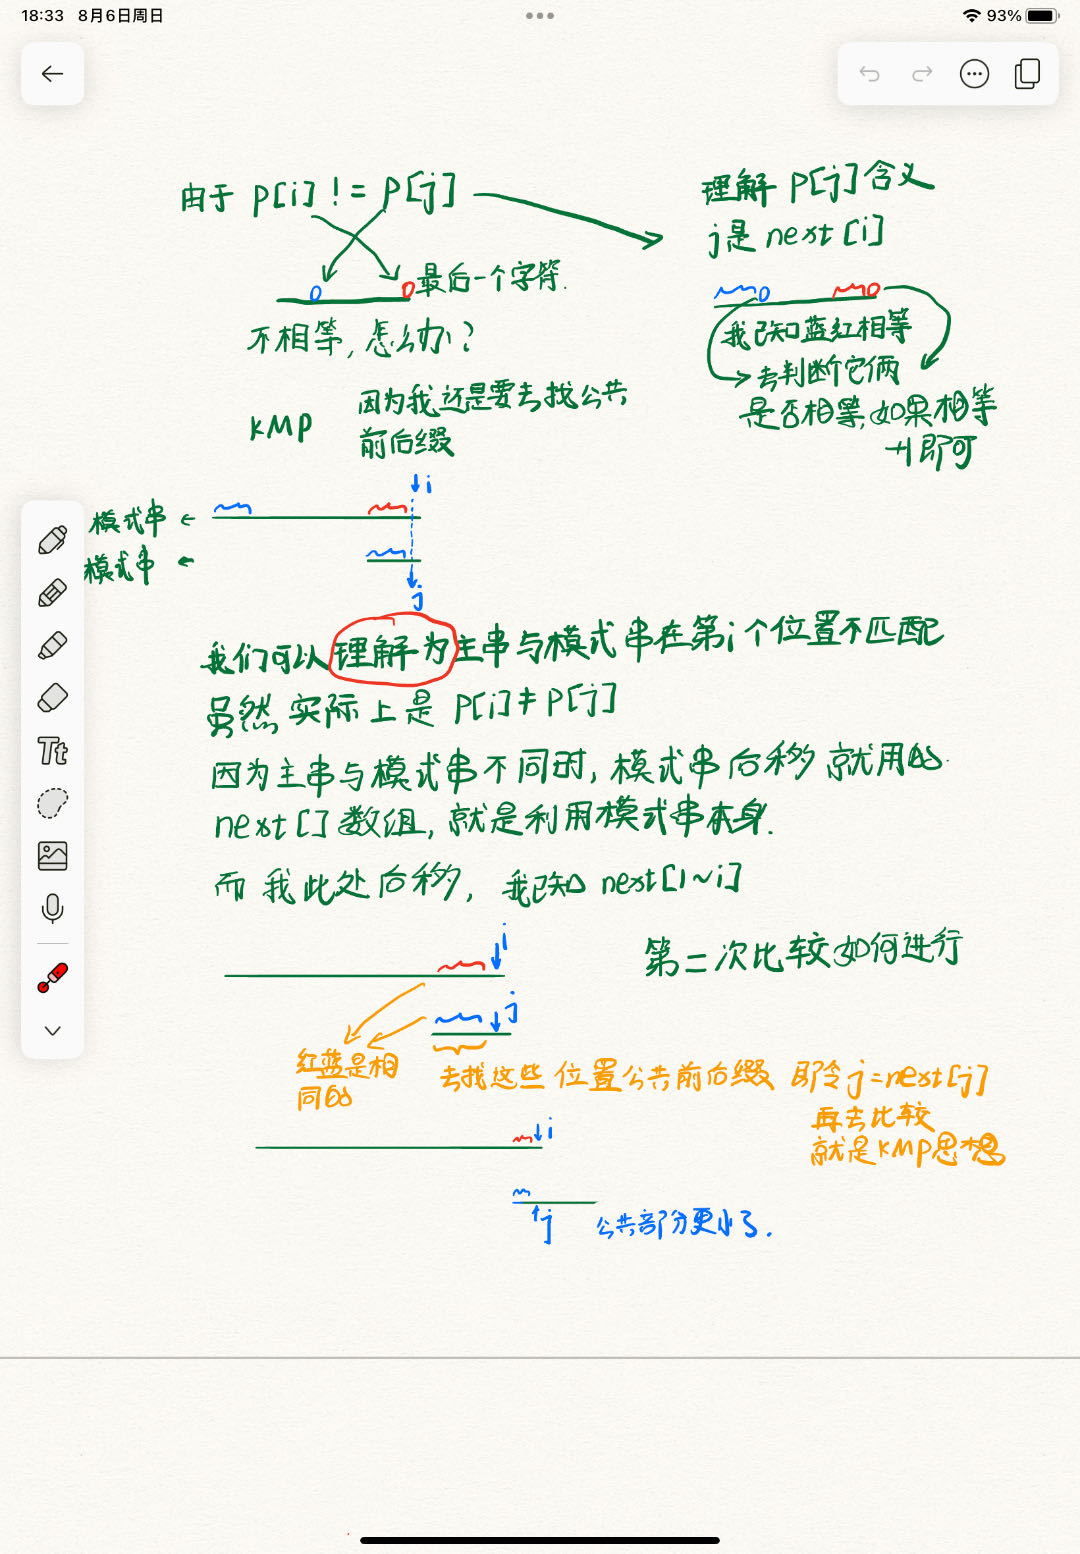 18:33 8月6日周日
93%
由于 P[i] != P[j]
最后一个字符.
不相等, 怎么办?
理解 P[j] 含义
j是 next[i]
我已知蓝红相等
去判断它俩
是否相等,如果相等
+1即可
KMP
因为我还是要去找公共
前后缀
i
模式串 ←
模式串 ←
j
我们可以理解为主串与模式串在第i个位置不匹配
虽然 实际上是 P[i] ≠ P[j]
因为主串与模式串不同时, 模式串后移 就用的
next[] 数组, 就是利用模式串本身.
而 我此处后移, 我已知 next[1~i]
i
第二次比较如何进行
j
红蓝是相
同的
去找这些 位置公共前后缀 即令j=next[j]
再去比较
就是KMP思想
i
j
公共部分更小了.
Tt